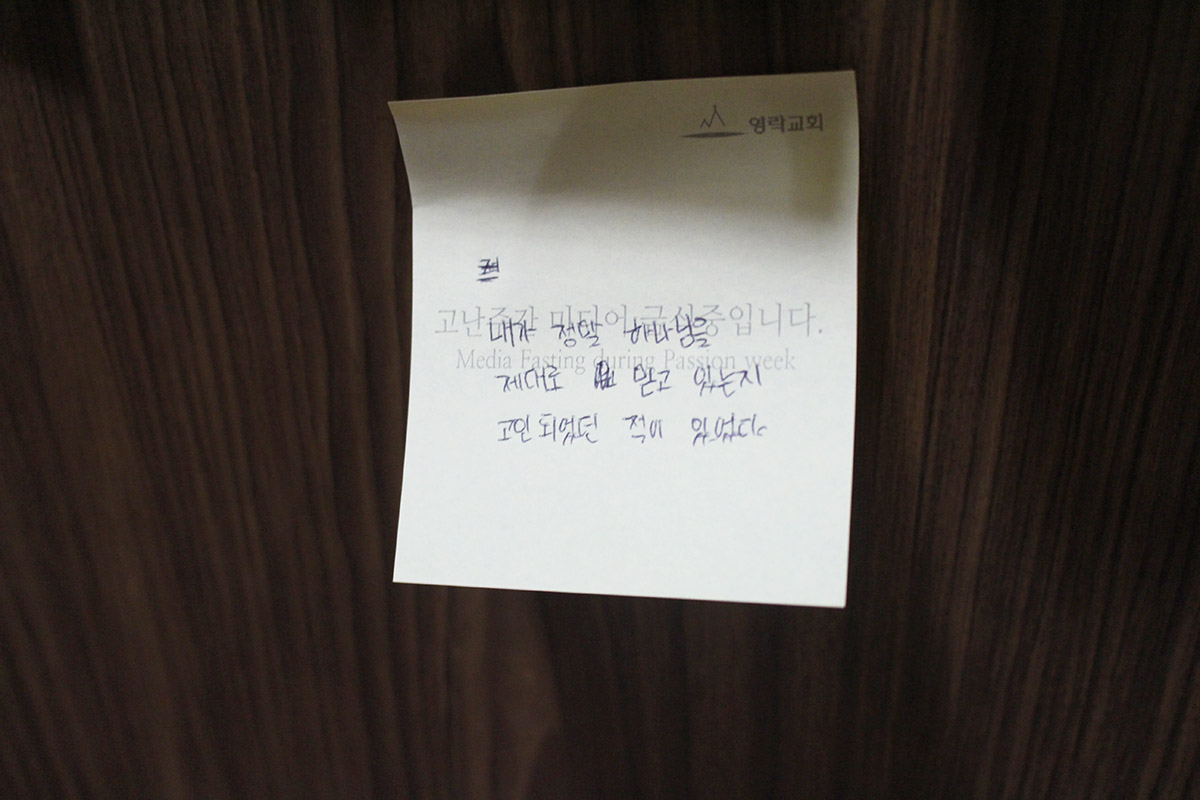 영락교회
고난주간 미디어 금식중입니다.
내가 정말 하나님을
Media Fasting during Passion week
제대로 믿고 있는지
고민되었던 적이 있었다.